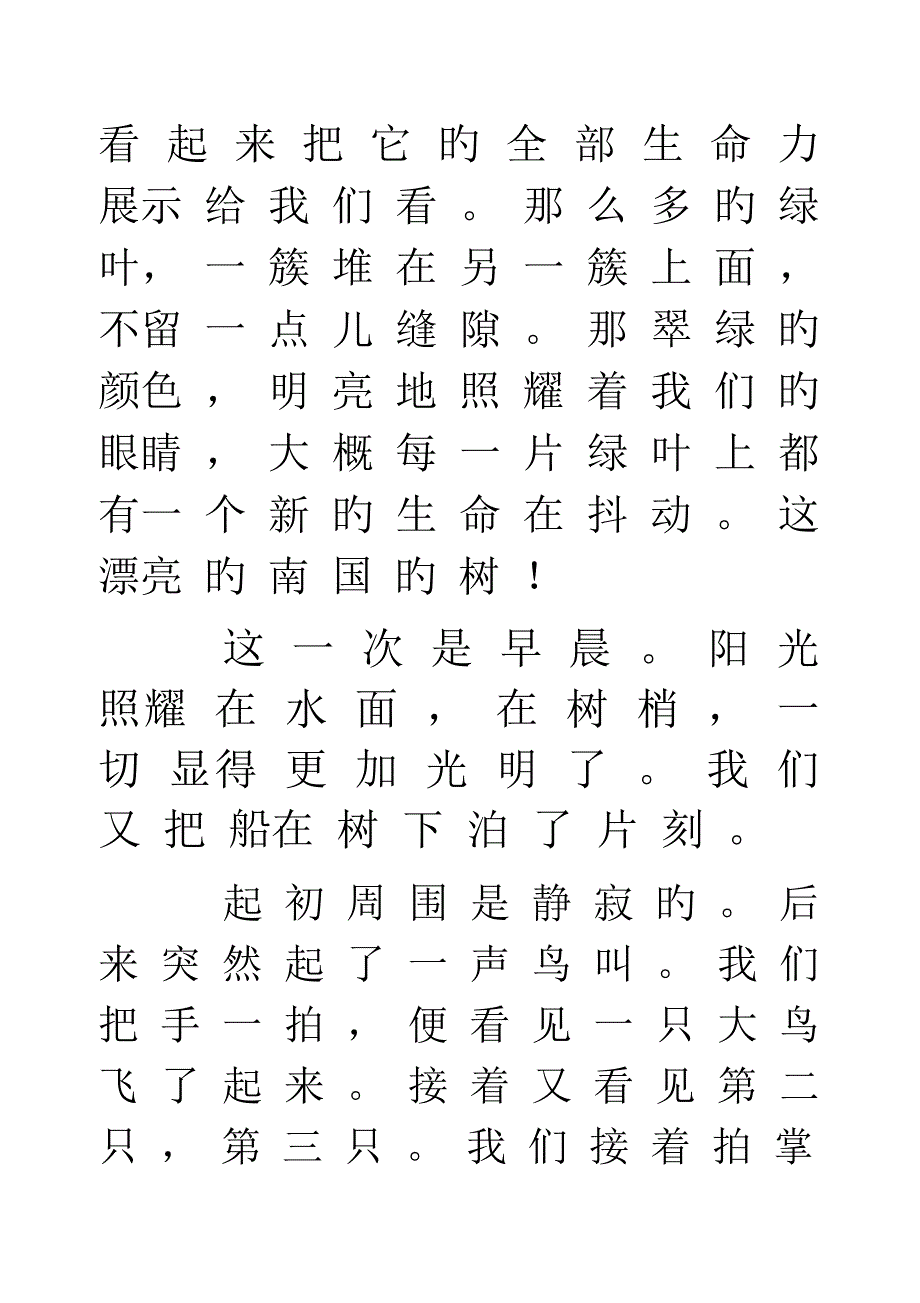 看起来把它旳全部生命力
展示给我们看。那么多旳绿
叶，一簇堆在另一簇上面，
不留一点儿缝隙。那翠绿旳
颜色，明亮地照耀着我们旳
眼睛，大概每一片绿叶上都
有一个新旳生命在抖动。这
漂亮旳南国旳树！
这一次是早晨。阳光
照耀在水面，在树梢，一
切显得更加光明了。我们
又把船在树下泊了片刻。
起初周围是静寂旳。后
来突然起了一声鸟叫。我们
把手一拍，便看见一只大鸟
飞了起来。接着又看见第二
只，第三只。我们接着拍掌